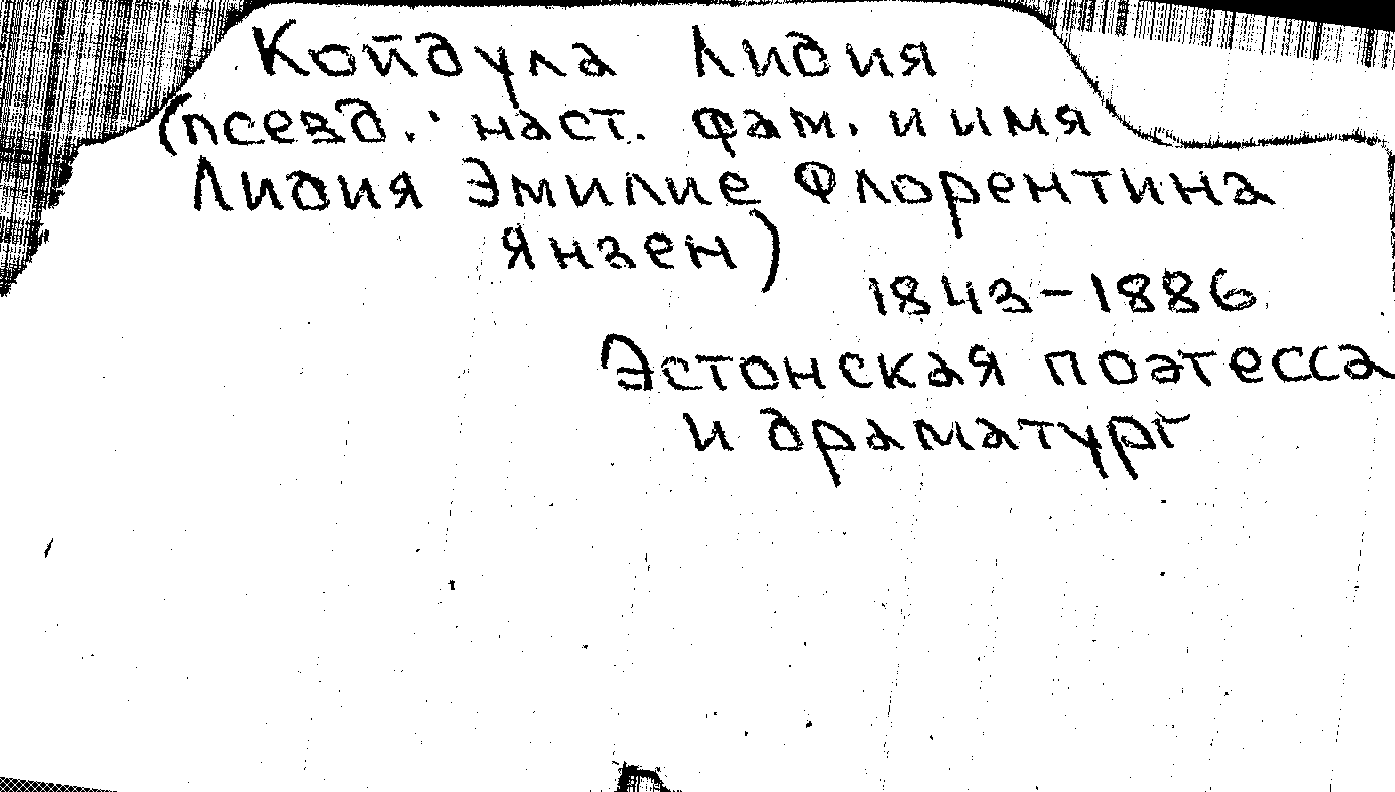 Койдула Лидия
(псевд.: наст. фам. и имя
Лидия Эмилие Флорентина
Янзен)
1843-1886
Эстонская поэтесса
и драматург